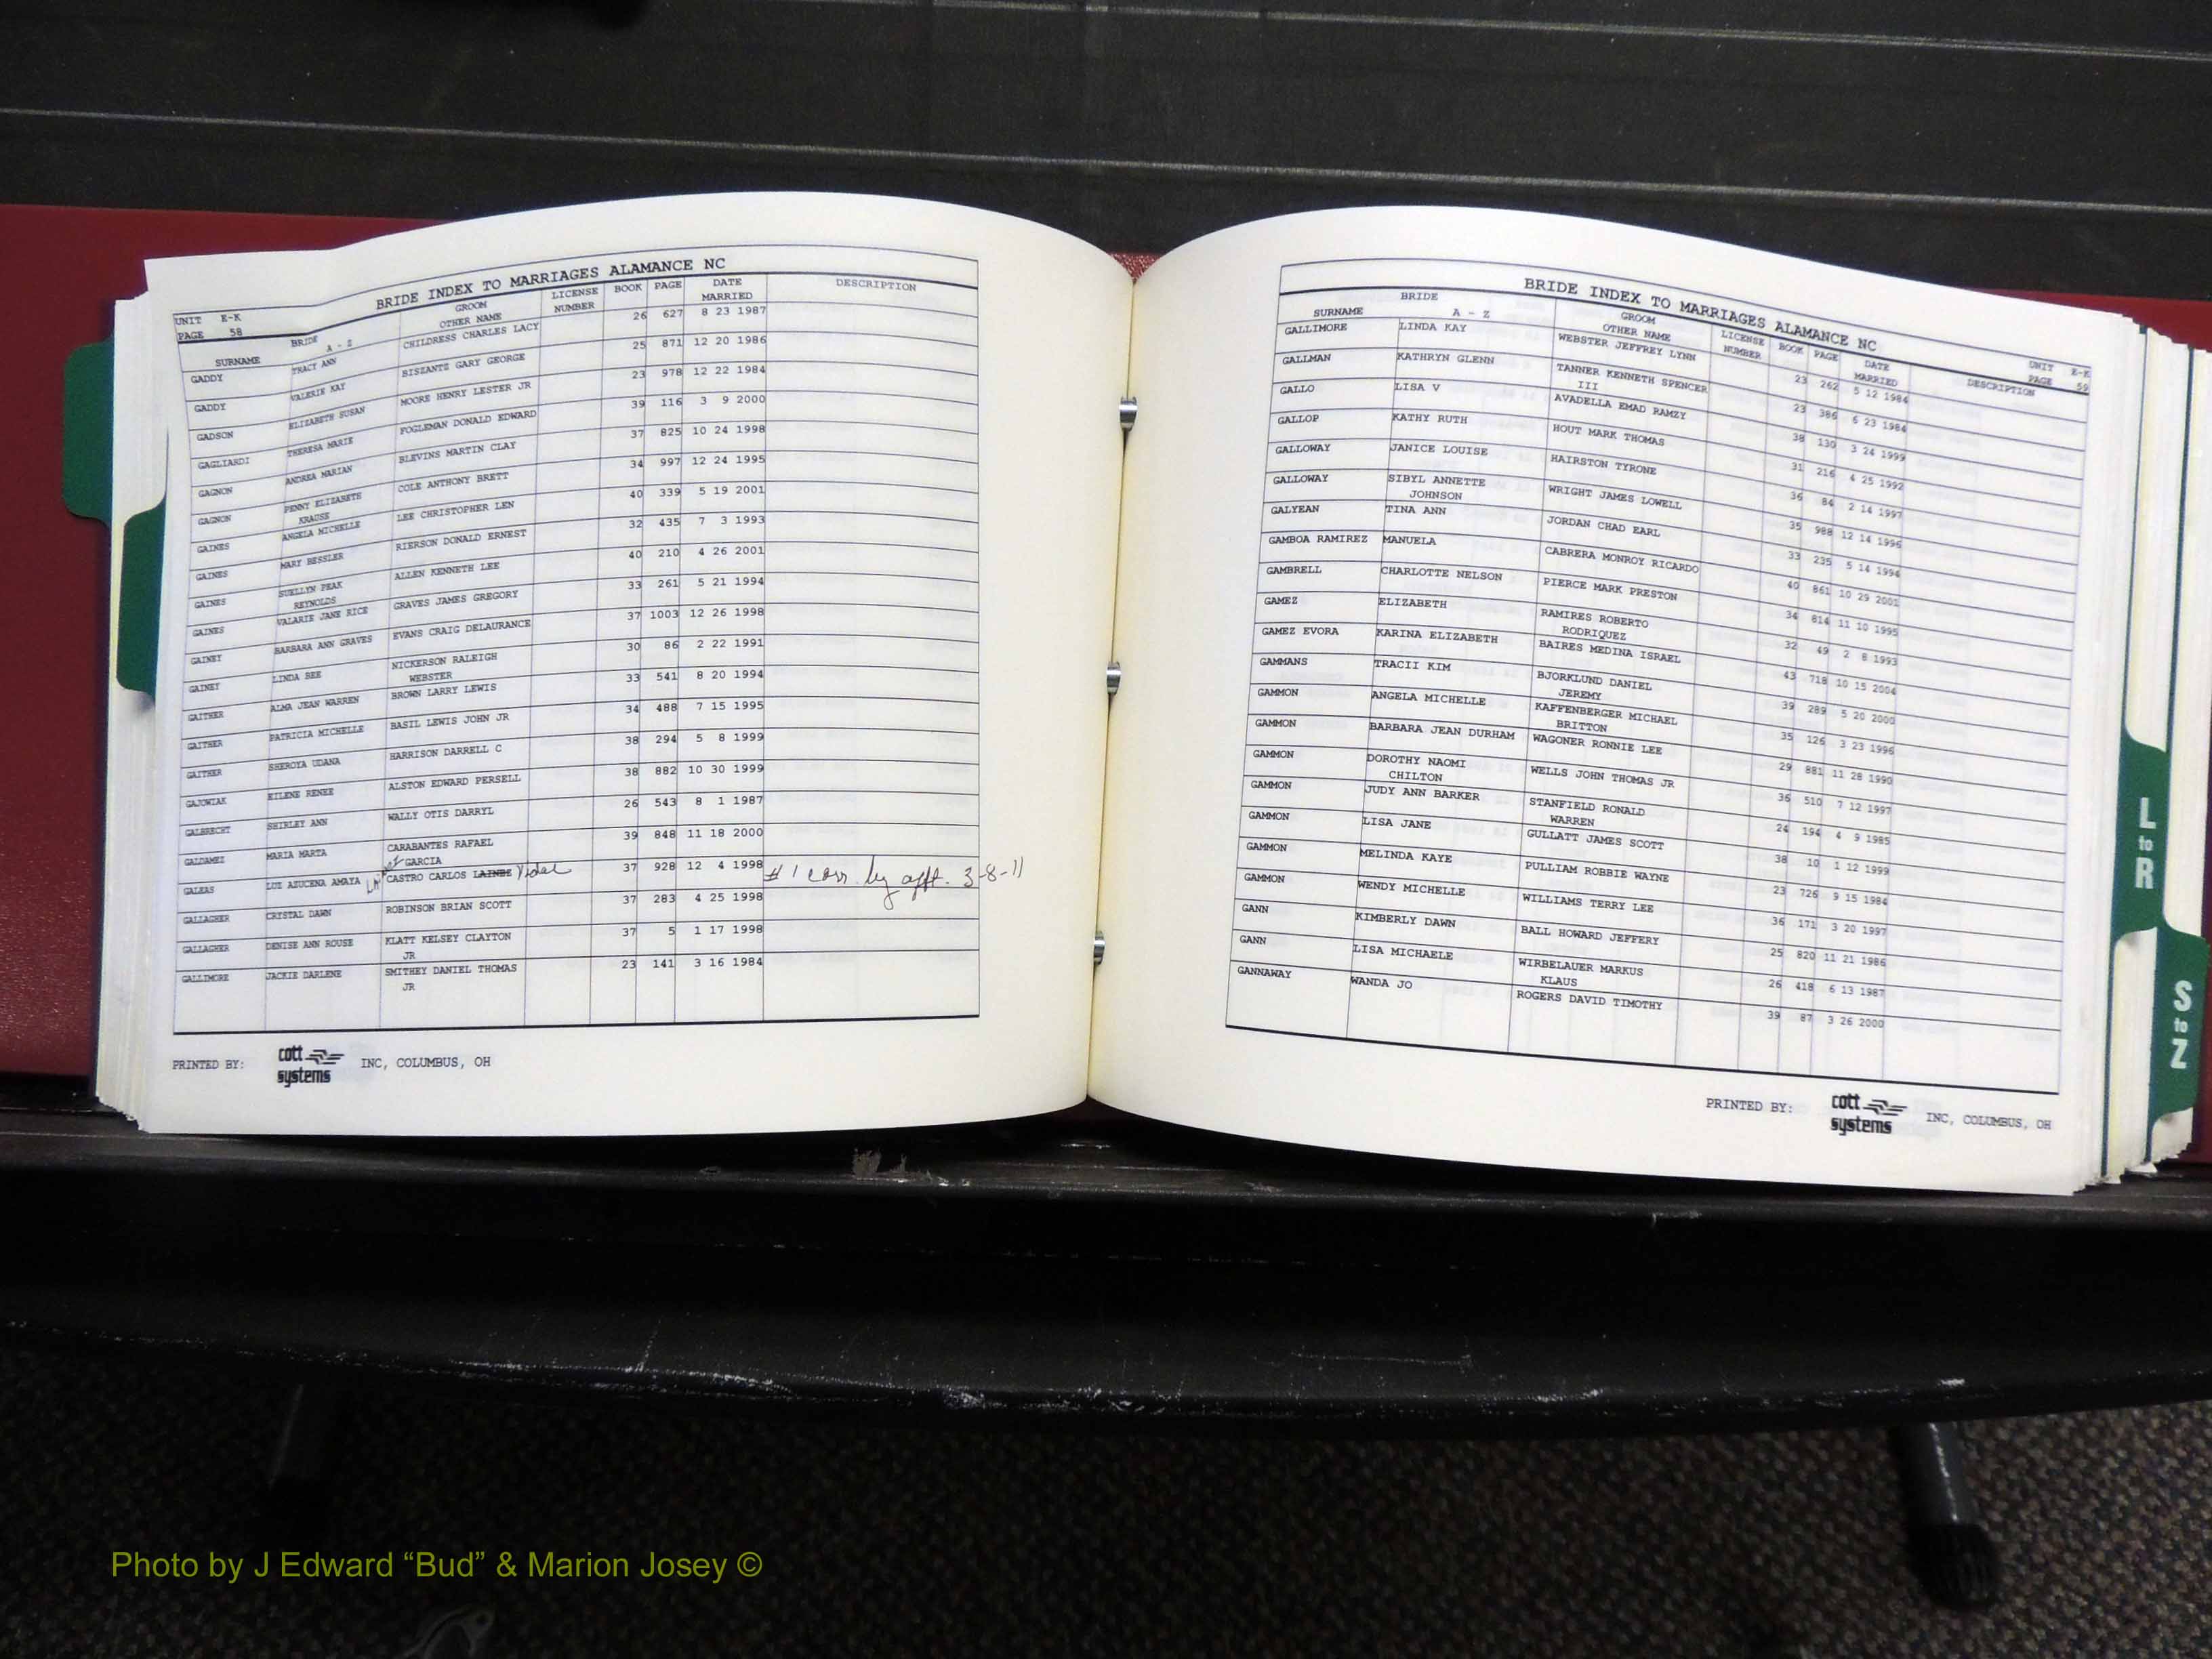 BRIDE INDEX TO MARRIAGES ALAMANCE NC
UNIT E-K
PAGE 58
SURNAME BRIDE A - Z GROOM OTHER NAME LICENSE NUMBER BOOK PAGE DATE MARRIED DESCRIPTION
GADDY TRACY ANN CHILDRESS CHARLES LACY 26 627 8 23 1987
GADDY VALERIE KAY BISZANTZ GARY GEORGE 25 871 12 20 1986
GADSON ELIZABETH SUSAN MOORE HENRY LESTER JR 23 978 12 22 1984
GAGLIARDI THERESA MARIE FOGLEMAN DONALD EDWARD 39 116 3 9 2000
GAGNON ANDREA MARIAN BLEVINS MARTIN CLAY 37 825 10 24 1998
GAGNON PENNY ELIZABETH COLE ANTHONY BRETT 34 997 12 24 1995
KRAUSE
GAINES ANGELA MICHELLE LEE CHRISTOPHER LEN 40 339 5 19 2001
GAINES MARY BESSLER RIERSON DONALD ERNEST 32 435 7 3 1993
GAINES SUELLYN PEAK ALLEN KENNETH LEE 40 210 4 26 2001
REYNOLDS
GAINES VALARIE JANE RICE GRAVES JAMES GREGORY 33 261 5 21 1994
GAINEY BARBARA ANN GRAVES EVANS CRAIG DELAURANCE 37 1003 12 26 1998
GAINEY LINDA BEE NICKERSON RALEIGH 30 86 2 22 1991
WEBSTER
GAITHER ALMA JEAN WARREN BROWN LARRY LEWIS 33 541 8 20 1994
GAITHER PATRICIA MICHELLE BASIL LEWIS JOHN JR 34 488 7 15 1995
GAITHER SHEROYA UDANA HARRISON DARRELL C 38 294 5 8 1999
GAJOWIAK EILENE RENEE ALSTON EDWARD PERSELL 38 882 10 30 1999
GALBRECHT SHIRLEY ANN WALLY OTIS DARRYL 26 543 8 1 1987
GALDAMEZ MARIA MARTA CARABANTES RAFAEL 39 848 11 18 2000
GARCIA
GALEAS LUZ AZUCENA AMAYA CASTRO CARLOS LAINEZ Vidal 37 928 12 4 1998 #1 corr. by afft. 3-8-11
GALLAGHER CRYSTAL DAWN ROBINSON BRIAN SCOTT 37 283 4 25 1998
GALLAGHER DENISE ANN ROUSE KLATT KELSEY CLAYTON 37 5 1 17 1998
JR
GALLIMORE JACKIE DARLENE SMITHEY DANIEL THOMAS 23 141 3 16 1984
JR
PRINTED BY: cott systems INC, COLUMBUS, OH
BRIDE INDEX TO MARRIAGES ALAMANCE NC
UNIT E-K
PAGE 59
SURNAME BRIDE A - Z GROOM OTHER NAME LICENSE NUMBER BOOK PAGE DATE MARRIED DESCRIPTION
GALLIMORE LINDA KAY WEBSTER JEFFREY LYNN 23 262 5 12 1984
GALLMAN KATHRYN GLENN TANNER KENNETH SPENCER 23 386 6 23 1984
III
GALLO LISA V AVADELLA EMAD RAMZY 38 130 3 24 1999
GALLOP KATHY RUTH HOUT MARK THOMAS 31 216 4 25 1992
GALLOWAY JANICE LOUISE HAIRSTON TYRONE 36 84 2 14 1997
GALLOWAY SIBYL ANNETTE WRIGHT JAMES LOWELL 35 988 12 14 1996
JOHNSON
GALYEAN TINA ANN JORDAN CHAD EARL 33 235 5 14 1994
GAMBOA RAMIREZ MANUELA CABRERA MONROY RICARDO 40 861 10 29 2001
GAMBRELL CHARLOTTE NELSON PIERCE MARK PRESTON 34 814 11 10 1995
GAMEZ ELIZABETH RAMIRES ROBERTO 32 49 2 8 1993
RODRIQUEZ
GAMEZ EVORA KARINA ELIZABETH BAIRES MEDINA ISRAEL 43 718 10 15 2004
GAMMANS TRACII KIM BJORKLUND DANIEL 39 289 5 20 2000
JEREMY
GAMMON ANGELA MICHELLE KAFFENBERGER MICHAEL 35 126 3 23 1996
BRITTON
GAMMON BARBARA JEAN DURHAM WAGONER RONNIE LEE 29 881 11 28 1990
GAMMON DOROTHY NAOMI WELLS JOHN THOMAS JR 36 510 7 12 1997
CHILTON
GAMMON JUDY ANN BARKER STANFIELD RONALD 24 194 4 9 1985
WARREN
GAMMON LISA JANE GULLATT JAMES SCOTT 38 10 1 12 1999
GAMMON MELINDA KAYE PULLIAM ROBBIE WAYNE 23 726 9 15 1984
GAMMON WENDY MICHELLE WILLIAMS TERRY LEE 36 171 3 20 1997
GANN KIMBERLY DAWN BALL HOWARD JEFFERY 25 820 11 21 1986
GANN LISA MICHAELE WIRBELAUER MARKUS 26 418 6 13 1987
KLAUS
GANNAWAY WANDA JO ROGERS DAVID TIMOTHY 39 87 3 26 2000
PRINTED BY: cott systems INC, COLUMBUS, OH
L to R
S to Z
Photo by J Edward “Bud” & Marion Josey ©